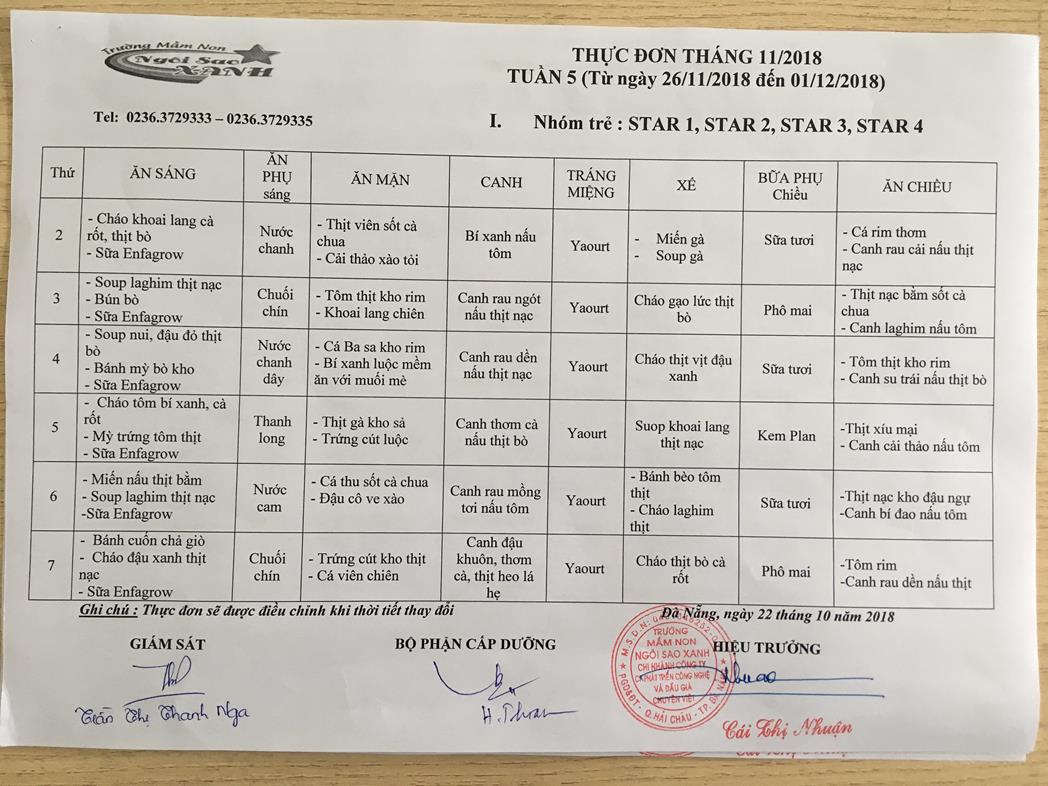 Trường Mầm Non
Ngôi Sao
XANH
THỰC ĐƠN THÁNG 11/2018
TUẦN 5 (Từ ngày 26/11/2018 đến 01/12/2018)
Tel: 0236.3729333 – 0236.3729335
I. Nhóm trẻ : STAR 1, STAR 2, STAR 3, STAR 4
Thứ
ĂN SÁNG
ĂN
PHỤ
sáng
ĂN MẶN
CANH
TRÁNG
MIỆNG
XẾ
BỮA PHỤ
Chiều
ĂN CHIỀU
2
- Cháo khoai lang cà
rốt, thịt bò
- Sữa Enfagrow
Nước
chanh
- Thịt viên sốt cà
chua
- Cải thảo xào tỏi
Bí xanh nấu
tôm
Yaourt
- Miến gà
- Soup gà
Sữa tươi
- Cá rim thơm
- Canh rau cải nấu thịt
nạc
3
- Soup laghim thịt nạc
- Bún bò
- Sữa Enfagrow
Chuối
chín
- Tôm thịt kho rim
- Khoai lang chiên
Canh rau ngót
nấu thịt nạc
Yaourt
Cháo gạo lức thịt
bò
Phô mai
- Thịt nạc bằm sốt cà
chua
- Canh laghim nấu tôm
4
- Soup nui, đậu đỏ thịt
bò
- Bánh mỳ bò kho
- Sữa Enfagrow
Nước
chanh
dây
- Cá Ba sa kho rim
- Bí xanh luộc mềm
ăn với muối mè
Canh rau dền
nấu thịt nạc
Yaourt
Cháo thịt vịt đậu
xanh
Sữa tươi
- Tôm thịt kho rim
- Canh su trái nấu thịt bò
5
- Cháo tôm bí xanh, cà
rốt
- Mỳ trứng tôm thịt
- Sữa Enfagrow
Thanh
long
- Thịt gà kho sả
- Trứng cút luộc
Canh thơm cà
nấu thịt bò
Yaourt
Suop khoai lang
thịt nạc
Kem Plan
-Thịt xíu mại
- Canh cải thảo nấu tôm
6
- Miến nấu thịt bằm
- Soup laghim thịt nạc
-Sữa Enfagrow
Nước
cam
- Cá thu sốt cà chua
- Đậu cô ve xào
Canh rau mồng
tơi nấu tôm
Yaourt
- Bánh bèo tôm
thịt
- Cháo laghim
thịt
Sữa tươi
-Thịt nạc kho đậu ngự
-Canh bí đao nấu tôm
7
- Bánh cuốn chả giò
- Cháo đậu xanh thịt
nạc
- Sữa Enfagrow
Chuối
chín
- Trứng cút kho thịt
- Cá viên chiên
Canh đậu
khuôn, thơm
cà, thịt heo lá
hẹ
Yaourt
Cháo thịt bò cà
rốt
Phô mai
-Tôm rim
-Canh rau dền nấu thịt
Ghi chú : Thực đơn sẽ được điều chỉnh khi thời tiết thay đổi
Đà Nẵng, ngày 22 tháng 10 năm 2018
GIÁM SÁT
BỘ PHẬN CẤP DƯỠNG
HIỆU TRƯỞNG
TRƯỜNG
MẦM NON
NGÔI SAO XANH
CHI NHÁNH CÔNG TY
CP PHÁT TRIỂN CÔNG NGHỆ
VÀ ĐẤU GIÁ
CHUYÊN VIỆT
PGD&ĐT - Q.HẢI CHÂU - TP. ĐÀ NẴNG
Trần Thị Thanh Nga
Cái Thị Nhuận